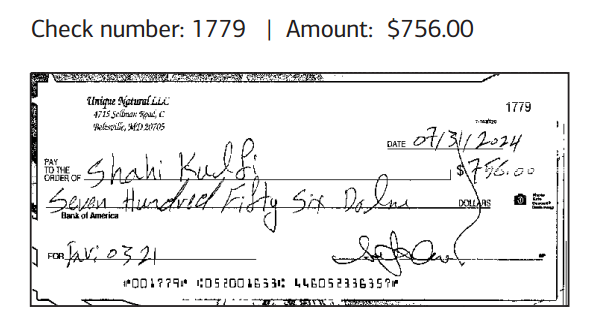 Check number: 1779 | Amount: $756.00
Unique Natural LLC
4715 Sellman Road, C
Beltsville, MD 20705
1779
DATE 07/31/2024
PAY TO THE ORDER OF Shahi Kulfi
$756.00
Seven Hundred Fifty Six
DOLLARS
Bank of America
FOR Inv: 0321
⑈001779⑈ ⑆052001633⑆ 446052336357⑈